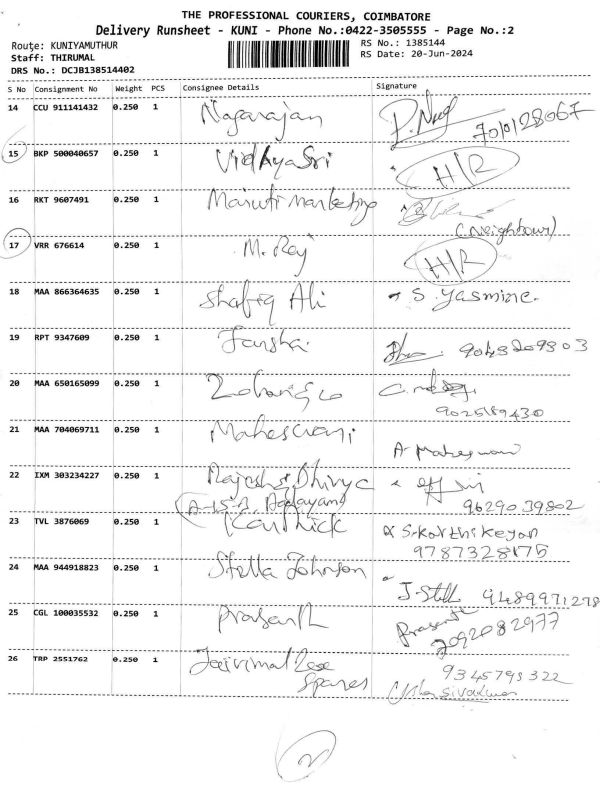 THE PROFESSIONAL COURIERS, COIMBATORE
Delivery Runsheet - KUNI - Phone No.:0422-3505555 - Page No.:2
Route: KUNIYAMUTHUR
Staff: THIRUMAL
DRS No.: DCJB138514402
RS No.: 1385144
RS Date: 20-Jun-2024
S No Consignment No Weight PCS Consignee Details Signature
14 CCU 911141432 0.250 1 Nagarajan
7010128067
15 BKP 500040657 0.250 1 VidhyaSri H/R
16 RKT 9607491 0.250 1 Maruti marketing
(Neighbour)
17 VRR 676614 0.250 1 M. Raj H/R
18 MAA 866364635 0.250 1 Shafiq Ali S. Yasmine.
19 RPT 9347609 0.250 1 9043209303
20 MAA 650165099 0.250 1
9025189430
21 MAA 704069711 0.250 1 Maheswari A- Maheswari
22 IXM 303234227 0.250 1
9629039802
23 TVL 3876069 0.250 1 Karthick S. Karthikeyan
9787328175
24 MAA 944918823 0.250 1 Stella Johnson J. Stella 9489971278
25 CGL 100035532 0.250 1 Prasanth Prasanth
7092082977
26 TRP 2551762 0.250 1 9345795322
Spares Sivakumar
2